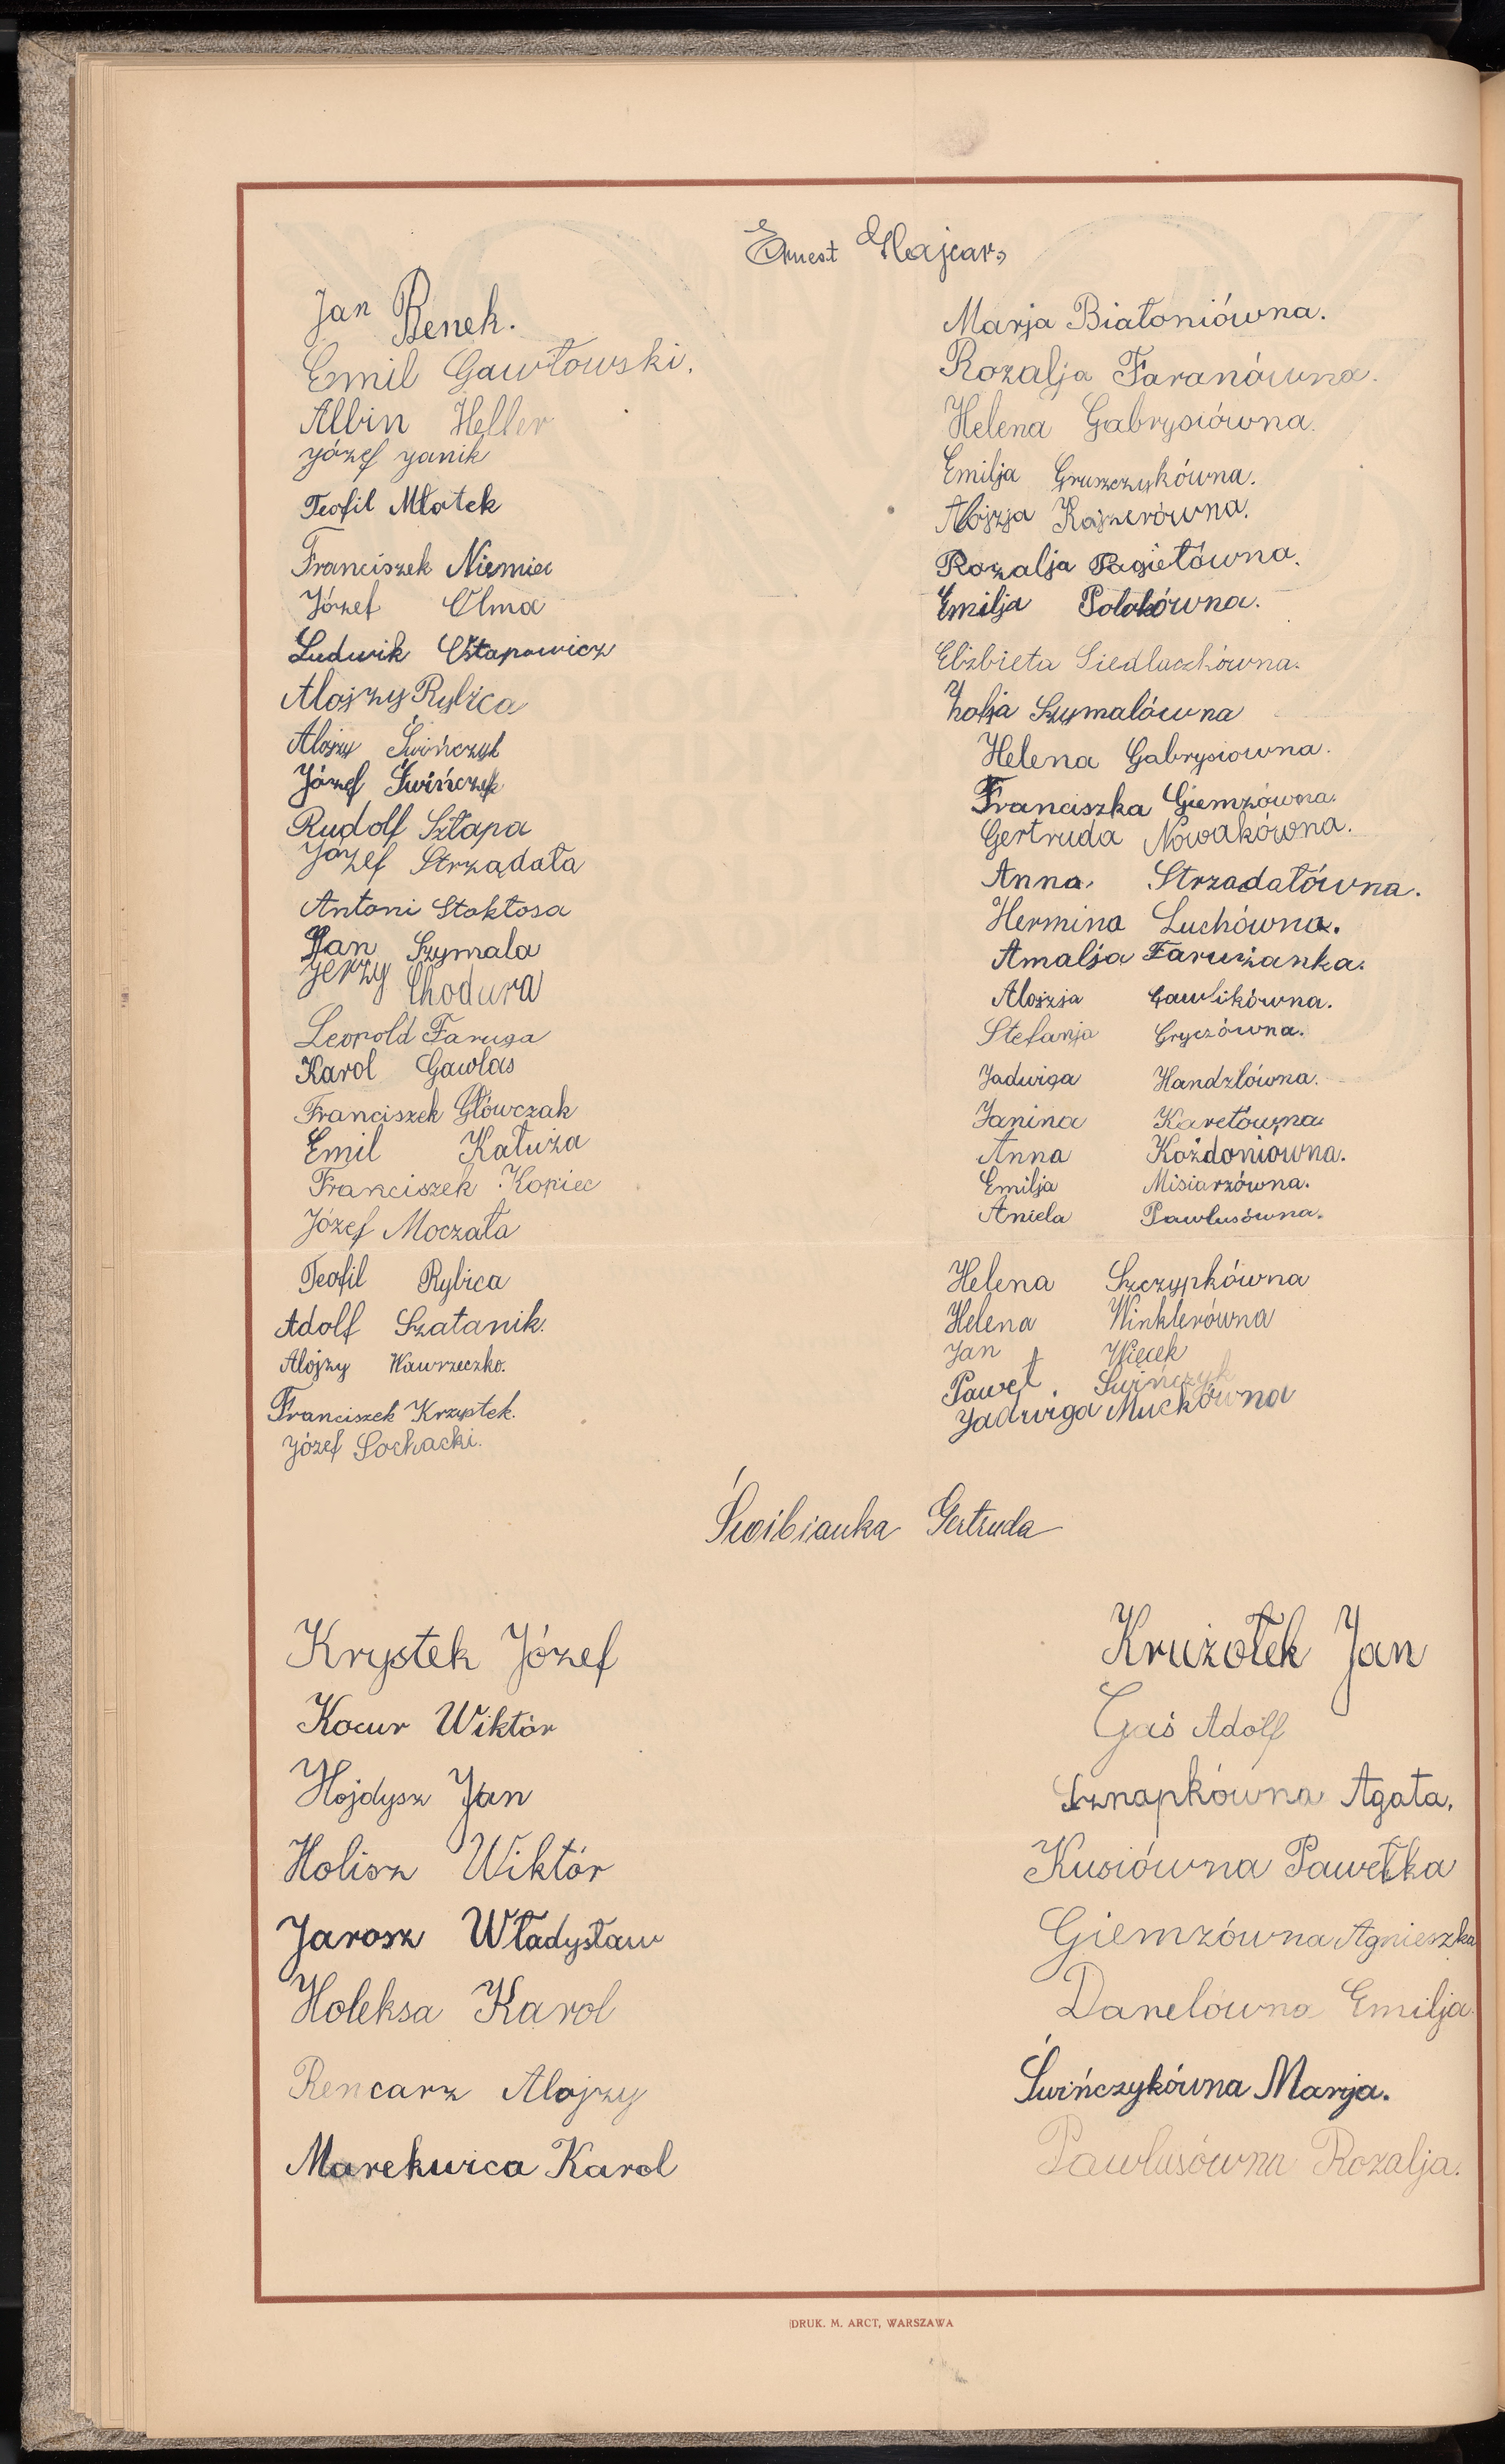 Ernest Hajcar,
Jan Benek.
Emil Gawłowski.
Albin Heller
Józef Janik
Teofil Młotek
Franciszek Niemiec
Józef Olma
Ludwik Ostapowicz
Alojzy Rybica
Alojzy Świńczyk
Józef Świńczyk
Rudolf Szłapa
Józef Strządała
Antoni Stokłosa
Jan Szymala
Jerzy Chodura
Leopold Faruga
Karol Gawlas
Franciszek Główczak
Emil Kałuża
Franciszek Kopiec
Józef Moczała
Teofil Rybica
Adolf Szatanik.
Alojzy Wawrzeczko.
Franciszek Krzyptek.
Józef Sochacki.
Marja Białoniówna.
Rozalja Faranówna.
Helena Gabrysiówna.
Emilja Gruszczykówna.
Alojzja Kajzerówna.
Rozalja Pagietówna.
Emilja Polokówna.
Elżbieta Siedlaczkówna.
Zofja Szymalówna
Helena Gabrysiowna.
Franciszka Giemzówna.
Gertruda Nowakówna.
Anna. Strzadałówna.
Hermina Luchówna.
Amalja Farużanka.
Alojzja Gawlikówna.
Stefanja Gryczówna.
Jadwiga Handzlówna.
Janina Karetówna.
Anna Kożdoniówna.
Emilja Misiarzówna.
Aniela Pawlusówna.
Helena Szczypkówna
Helena Winklerówna
Jan Więcek
Paweł. Świńczyk
Jadwiga Muckówna
Świbianka Gertruda
Krystek Józef
Kocur Wiktór
Hojdysz Jan
Holisz Wiktór
Jarosz Władysław
Holeksa Karol
Rencarz Alojzy
Marekwica Karol
Krużołek Jan
Gaś Adolf
Sznapkówna Agata.
Kusiówna Pawełka
Giemzówna Agnieszka
Danelówna Emilja.
Świńczykówna Marja.
Pawlusówna Rozalja.
DRUK. M. ARCT, WARSZAWA